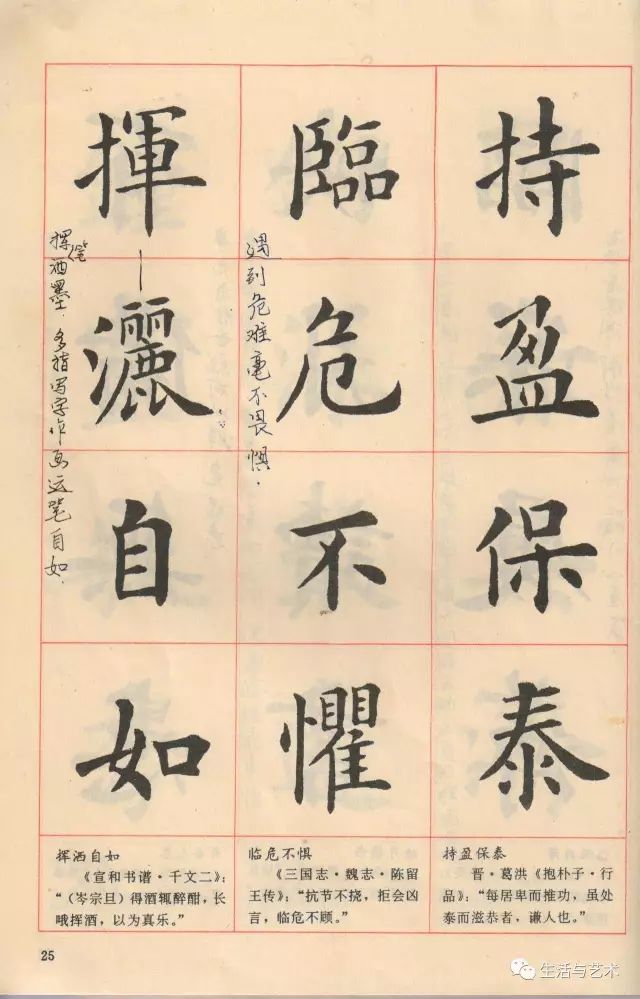 持盈保泰
臨危不懼
遇到危难毫不畏惧.
揮灑自如
挥洒笔墨.多指写字作画运笔自如.
挥洒自如
《宣和书谱·千文二》：
“（岑宗旦）得酒辄醉酣，长
哦挥洒，以为真乐。”
临危不惧
《三国志·魏志·陈留
王传》：“抗节不挠，拒会凶
言，临危不顾。”
持盈保泰
晋·葛洪《抱朴子·行
品》：“每居卑而推功，虽处
泰而滋恭者，谦人也。”
25
生活与艺术